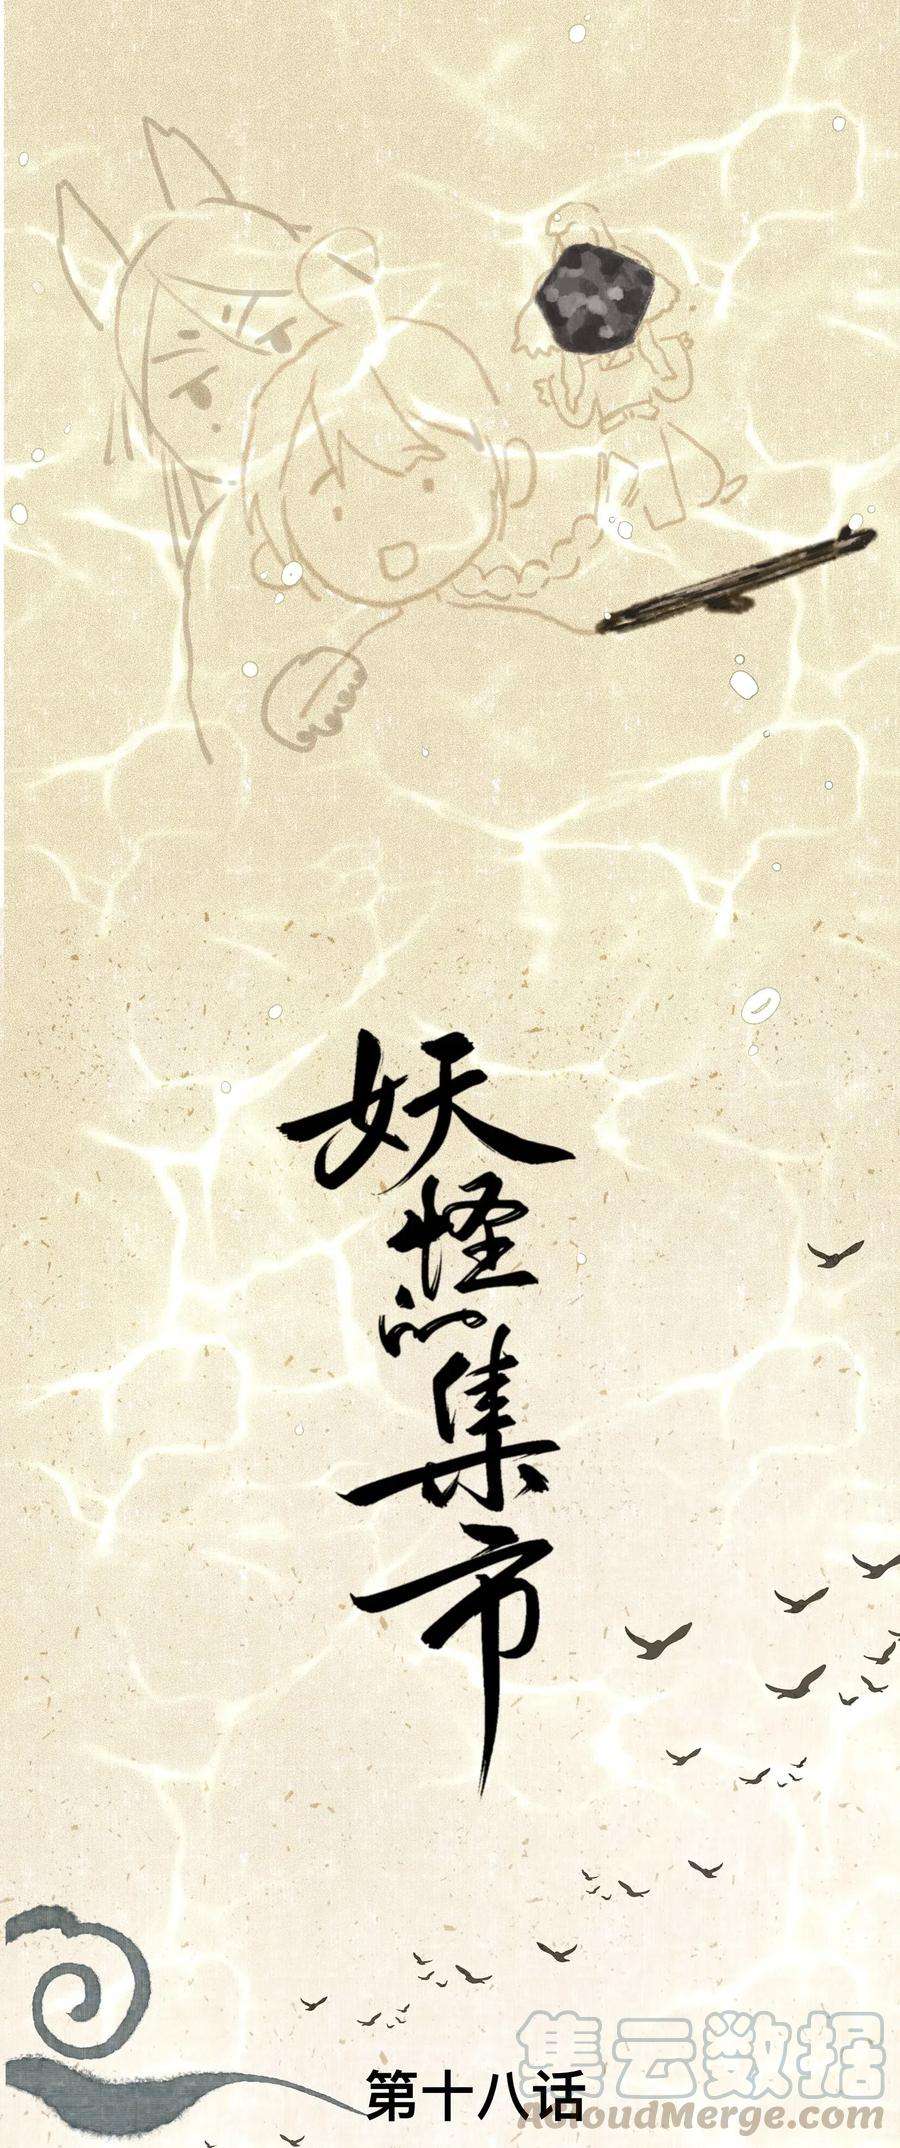 妖怪的集市
集云数据
第十八话
JiCloudMerge.com